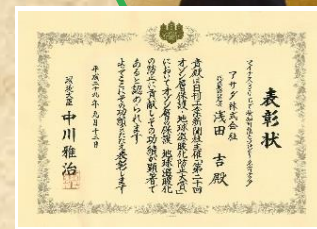 表彰状
アサダ株式会社
浅田 吉 殿
貴殿は日刊工業新聞社主催「第二十回
オゾン層保護・地球温暖化防止大賞」
においてオゾン層保護、地球温暖化
の防止に貢献しその功績が顕著で
あると認められます
よってここにその功績をたたえ表彰します
平成二十九年九月十二日
環境大臣 中川雅治